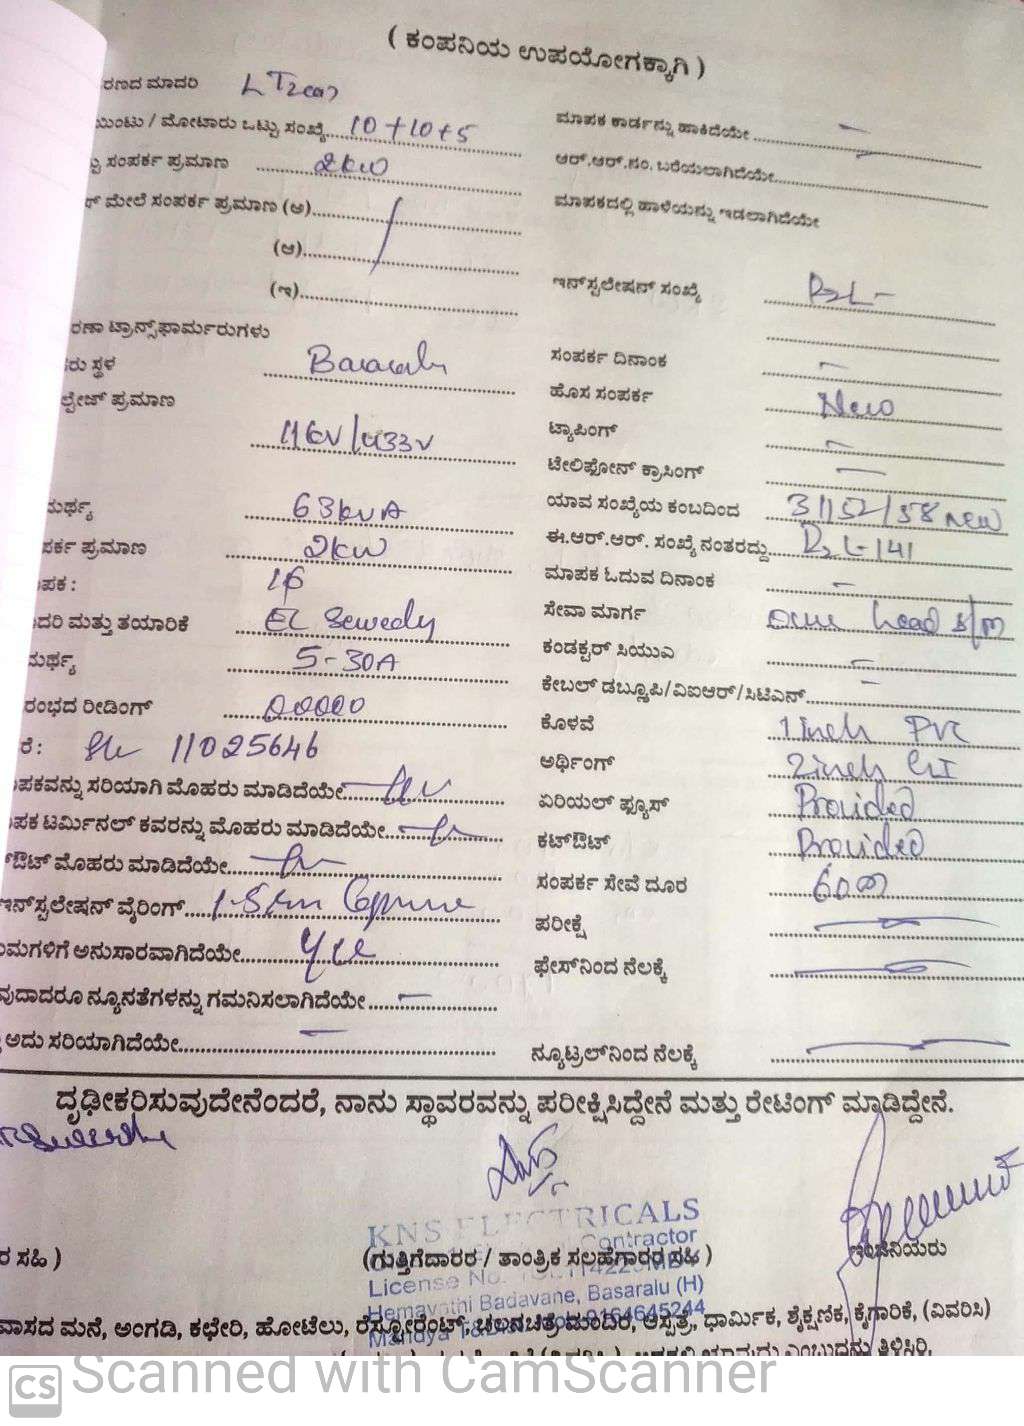 ( ಕಂಪನಿಯ ಉಪಯೋಗಕ್ಕಾಗಿ )
ರಣದ ಮಾದರಿ LT2(a)
ಯಿಂಟು / ಮೋಟಾರು ಒಟ್ಟು ಸಂಖ್ಯೆ 10+10+5
ಮಾಪಕ ಕಾರ್ಡನ್ನು ಹಾಕಿದೆಯೇ –
ಟ್ಟು ಸಂಪರ್ಕ ಪ್ರಮಾಣ 2kw
ಆರ್.ಆರ್.ನಂ. ಬರೆಯಲಾಗಿದೆಯೇ
ಮೇಲೆ ಸಂಪರ್ಕ ಪ್ರಮಾಣ (ಅ)
ಮಾಪಕದಲ್ಲಿ ಹಾಳೆಯನ್ನು ಇಡಲಾಗಿದೆಯೇ
(ಆ)
(ಇ)
ಇನ್‌ಸ್ಟಲೇಷನ್ ಸಂಖ್ಯೆ
ರಣಾ ಟ್ರಾನ್ಸ್‌ಫಾರ್ಮರುಗಳು
ರು ಸ್ಥಳ
ಸಂಪರ್ಕ ದಿನಾಂಕ –
ಲ್ಟೇಜ್ ಪ್ರಮಾಣ
ಹೊಸ ಸಂಪರ್ಕ New
11kv/433v
ಟ್ಯಾಪಿಂಗ್ –
ಟೇಲಿಫೋನ್ ಕ್ರಾಸಿಂಗ್ –
ಮರ್ಥ್ಯ 63kvA
ಯಾವ ಸಂಖ್ಯೆಯ ಕಂಬದಿಂದ 31/52/58 new
ಪರ್ಕ ಪ್ರಮಾಣ 2kw
ಈ.ಆರ್.ಆರ್. ಸಂಖ್ಯೆ ನಂತರದ್ದು L-141
ಪಕ :
ಮಾಪಕ ಓದುವ ದಿನಾಂಕ –
ದರಿ ಮತ್ತು ತಯಾರಿಕೆ EL Sewedy
ಸೇವಾ ಮಾರ್ಗ head
ಮರ್ಥ್ಯ 5-30A
ಕಂಡಕ್ಟರ್ ಸಿಯುಎ –
ರಂಭದ ರೀಡಿಂಗ್ 00000
ಕೇಬಲ್ ಡಬ್ಲ್ಯೂಪಿ/ವಿಐಆರ್/ಸಿಟಿಎನ್ –
ರೆ : 11025646
ಕೊಳವೆ 1 inch PVC
ಅರ್ಥಿಂಗ್ 2 inch GI
ಪಕವನ್ನು ಸರಿಯಾಗಿ ಮೊಹರು ಮಾಡಿದೆಯೇ
ಏರಿಯಲ್ ಫ್ಯೂಸ್ Provided
ಪಕ ಟರ್ಮಿನಲ್ ಕವರನ್ನು ಮೊಹರು ಮಾಡಿದೆಯೇ
ಕಟ್‌ಔಟ್ Provided
ಔಟ್ ಮೊಹರು ಮಾಡಿದೆಯೇ
ಸಂಪರ್ಕ ಸೇವೆ ದೂರ
ಇನ್‌ಸ್ಟಲೇಷನ್ ವೈರಿಂಗ್
ಪರೀಕ್ಷೆ –
ಯಮಗಳಿಗೆ ಅನುಸಾರವಾಗಿದೆಯೇ
ಫೇಸ್‌ನಿಂದ ನೆಲಕ್ಕೆ –
ವುದಾದರೂ ನ್ಯೂನತೆಗಳನ್ನು ಗಮನಿಸಲಾಗಿದೆಯೇ –
ಅದು ಸರಿಯಾಗಿದೆಯೇ –
ನ್ಯೂಟ್ರಲ್‌ನಿಂದ ನೆಲಕ್ಕೆ –
ದೃಢೀಕರಿಸುವುದೇನೆಂದರೆ, ನಾನು ಸ್ಥಾವರವನ್ನು ಪರೀಕ್ಷಿಸಿದ್ದೇನೆ ಮತ್ತು ರೇಟಿಂಗ್ ಮಾಡಿದ್ದೇನೆ.
KNS ELECTRICALS
Contractor
ರ ಸಹಿ )
(ಗುತ್ತಿಗೆದಾರರ / ತಾಂತ್ರಿಕ ಸಲಹೆಗಾರರ ಸಹಿ )
ಇಂಜಿನಿಯರು
License No.
Hemavathi Badavane, Basaralu (H)
Mandya 9164645244
ವಾಸದ ಮನೆ, ಅಂಗಡಿ, ಕಛೇರಿ, ಹೋಟೆಲು, ರೆಸ್ಟೋರೆಂಟ್, ಚಲನಚಿತ್ರ ಮಂದಿರ, ಆಸ್ಪತ್ರೆ, ಧಾರ್ಮಿಕ, ಶೈಕ್ಷಣಿಕ, ಕೈಗಾರಿಕೆ, (ವಿವರಿಸಿ)
ಎಂಬುದನ್ನು ತಿಳಿಸಿರಿ.
CS Scanned with CamScanner